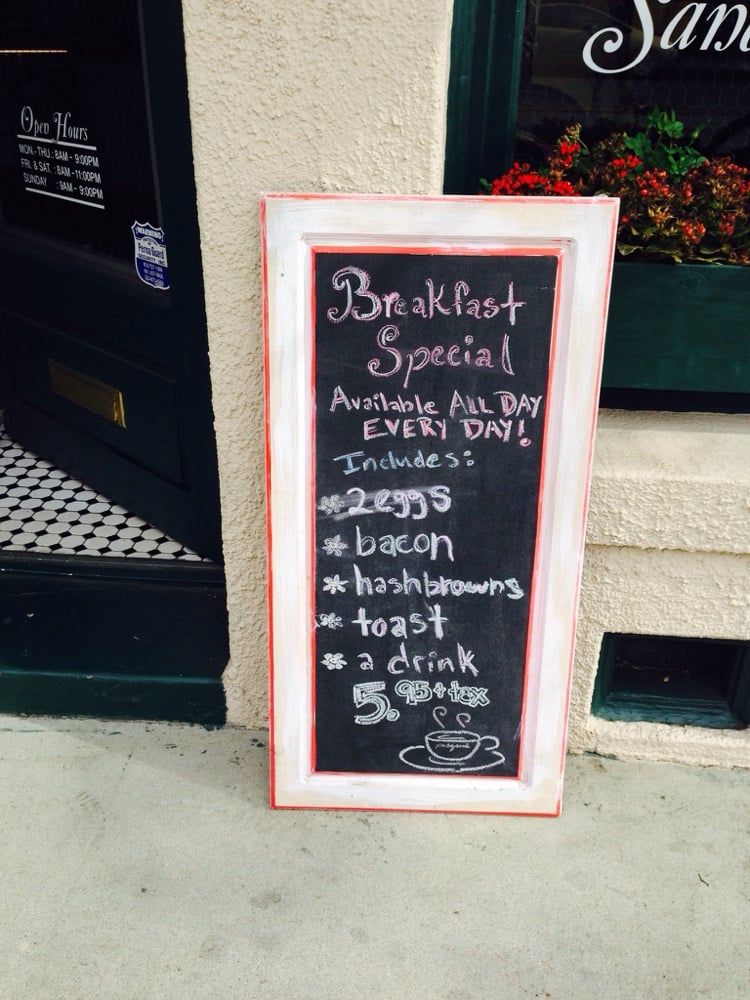 Open Hours
MON.- THU.: 8AM - 9:00PM
FRI. & SAT. : 8AM -11:00PM
SUNDAY : 9AM - 9:00PM
WARNING
Perma Guard
San
Breakfast
Special
Available ALL DAY
EVERY DAY!
Includes:
* 2 eggs
* bacon
* hashbrowns
* toast
* a drink
5.95 + tax